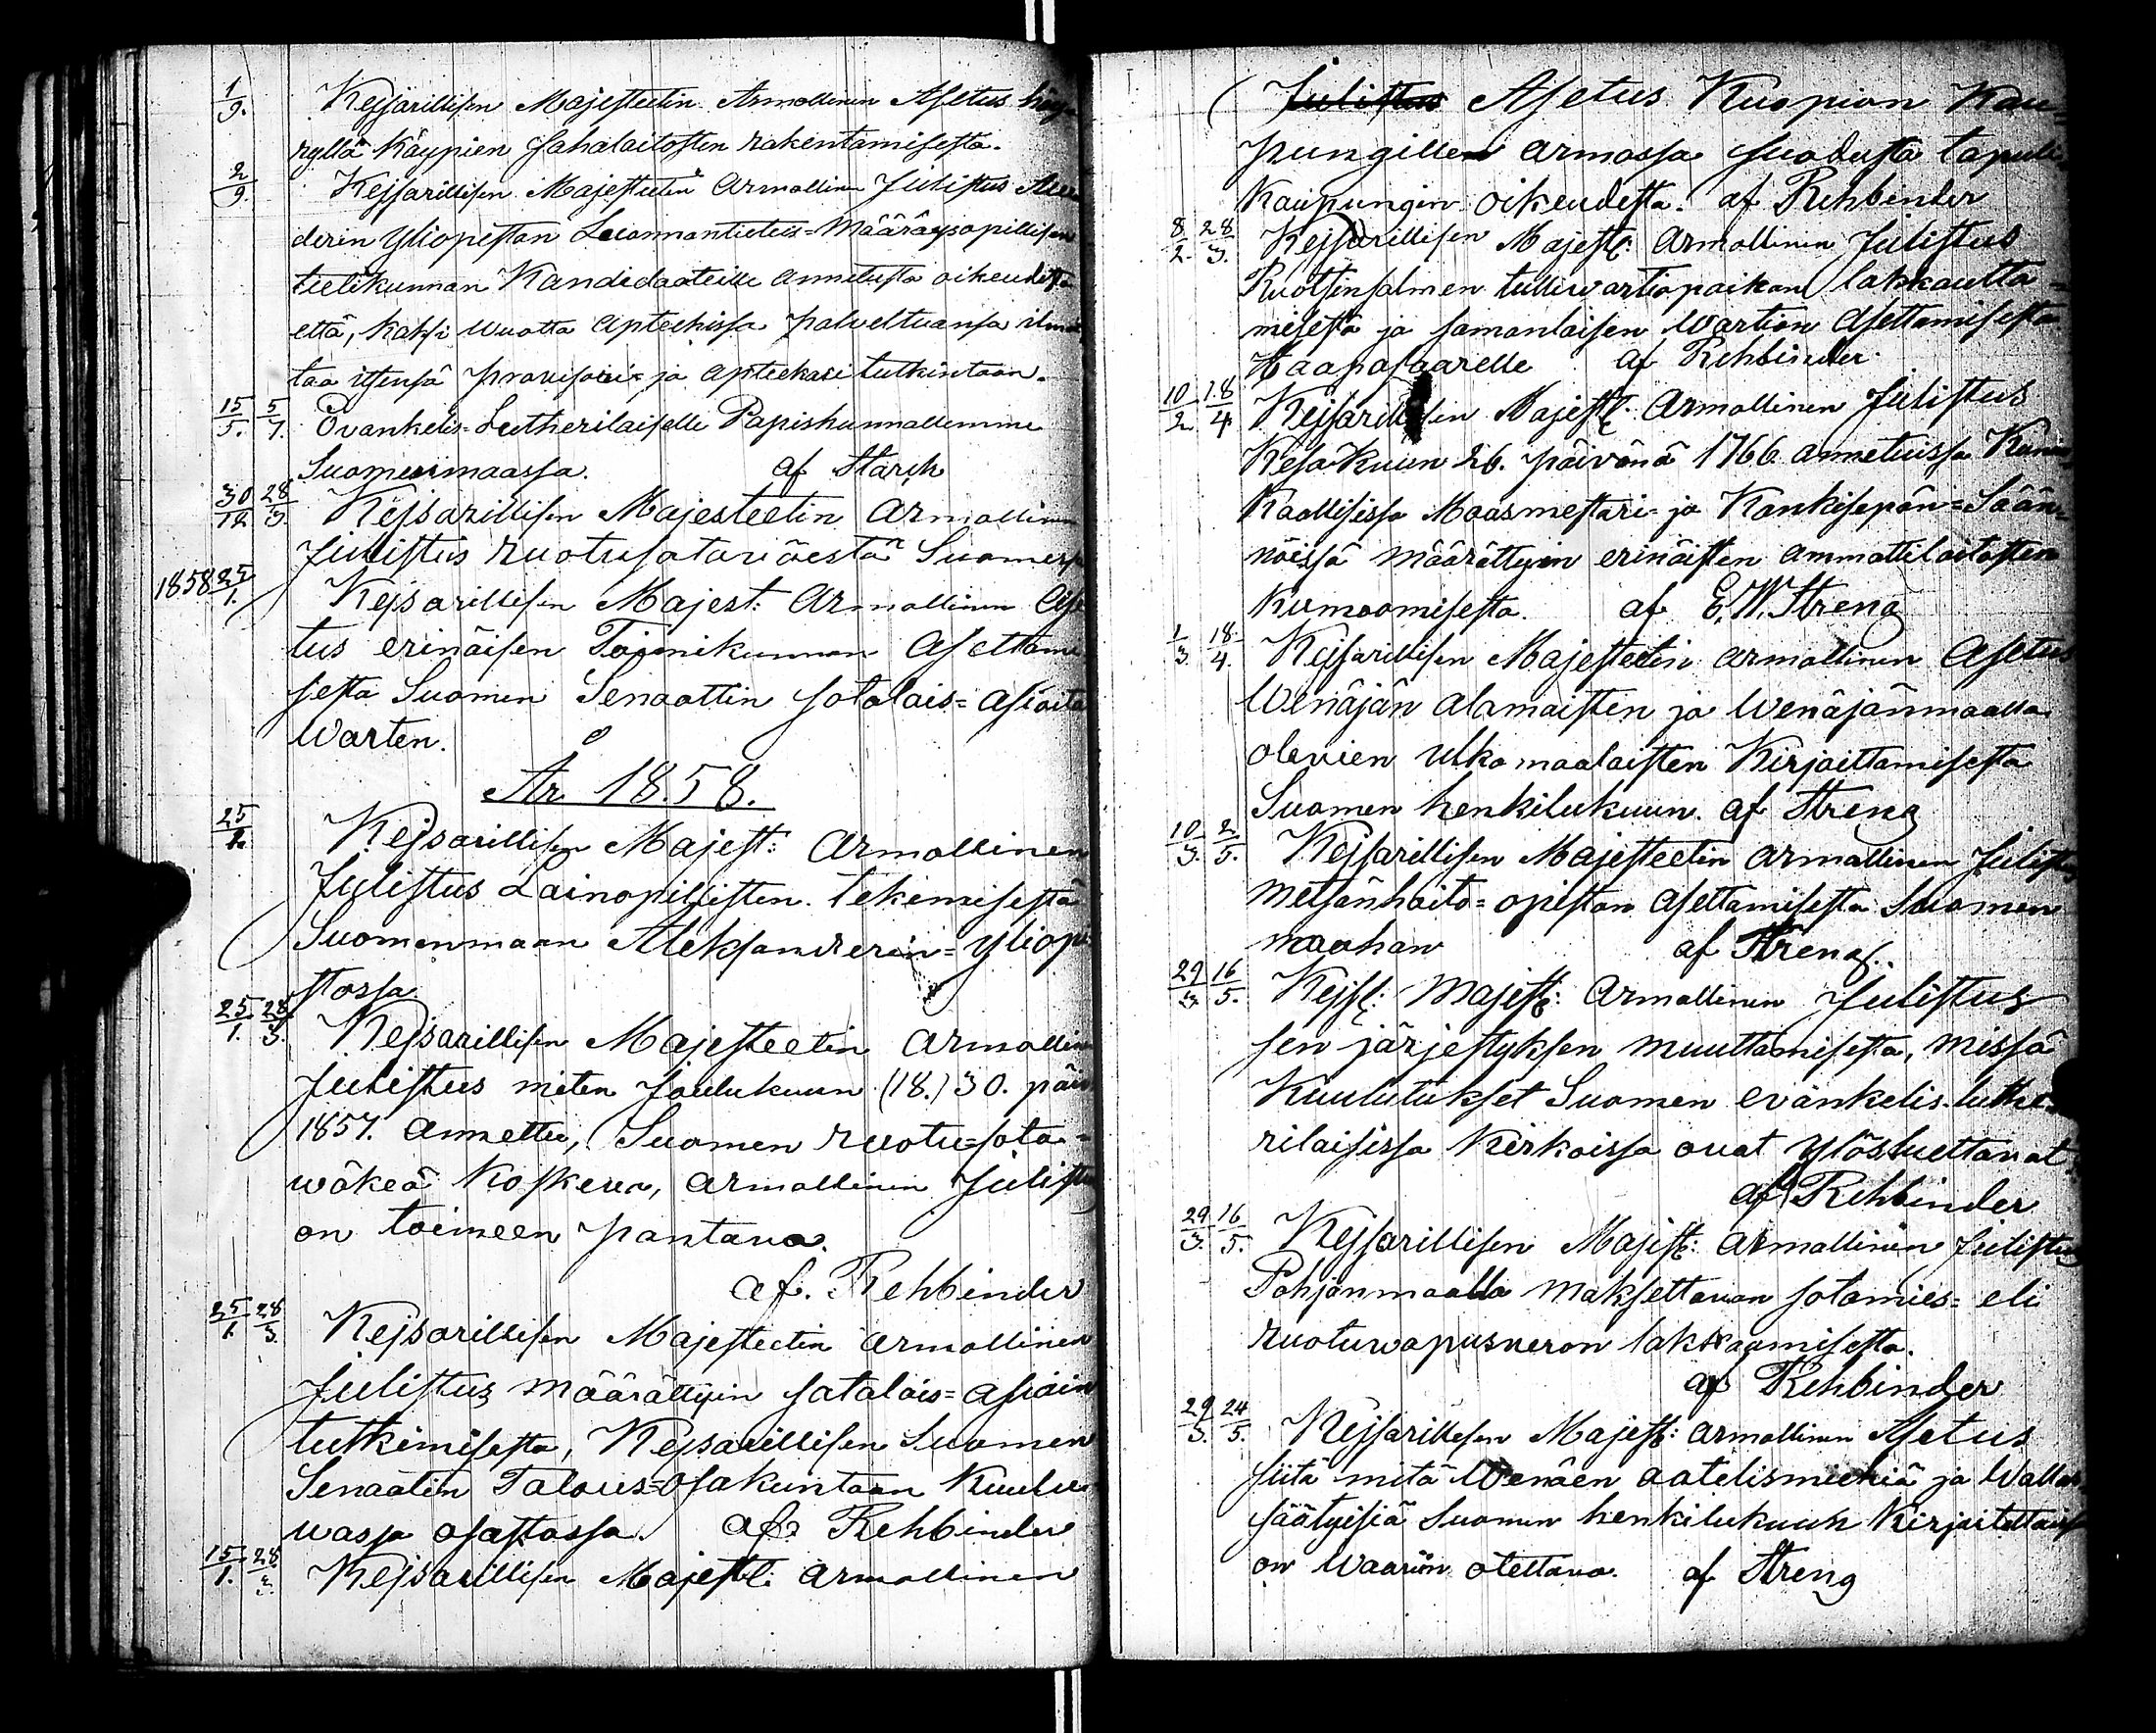 1/9. Kejsarillisen Majesteetin Armollinen Asetus höy-
ryllä Käypien sahalaitosten rakentamisesta.
2/9. Kejsarillisen Majesteetin Armollinen Julistus
derin Yliopiston Luonnontietus=Määräysopillisen
tielikunnan Kandidaateille annetusta oikeudesta
että, kaksi wuotta Apteekissa palveltuansa ilmot
taa itsensä provisori= ja apteekari tutkintoon.
15/5. 5/7. Evankelis-Lutherilaiselle Papiskunnallemme
Suomenmaassa. af Starck
30/12 28/3. Kejsarillisen Majesteetin Armollinen
Julistus ruotusotaväestä Suomessa
1858 25/1. Kejsarillisen Majest: Armollinen Ase
tus erinäisen Toimikunnan Asettami
sesta Suomen Senaattin sotalais=asioita
Warten.
År 1858.
25/1. Kejsarillisen Majest: Armollinen
Julistus Lainopillisten tekemisestä
Suomenmaan Aleksanderin=yliopi
stossa
25/1. 28/3. Kejsarillisen Majesteetin Armollinen
Julistus miten Joulukuun (18.) 30. päiv
1857. annettu, Suomen ruotu=sota=
wäkeä koskeva, armollinen Julistus
on toimeen pantava.
af. Rehbinder
25/1. 28/3. Kejsarillisen Majesteetin armollinen
Julistus määrättyin sotalais=asioin
tutkimisesta, Kejsarillisen Suomen
Senaatin Talous=Osakuntaan Kuulu
wassa osastossa. af Rehbinder
15/1. 28/3. Kejsarillisen Majest: armollinen
Julistus Asetus Kuopion Kau=
pungillen armossa suodusta tapuli
kaupungin oikeudesta. af Rehbinder
8/2. 28/3. Kejsarillisen Majest: Armollinen Julistus
Ruotsinsalmen tulliwartiopaikan lakkautta=
misesta ja samanlaisen wartion Asettamisesta
Haapasaarelle af Rehbinder
10/2 18/4 Kejsarillisen Majest: Armollinen Julistus
Kesäkuun 26. päivänä 1766 annetuissa Kunin
kaallisissa Maasmestari= ja Kankisepän=Sään=
nöissä määrättyin erinäisten ammattilaitosten
kumoomisesta. af E. W. Streng
1/3. 18/4. Kejsarillisen Majesteetin armollinen Asetus
Wenäjän alamaisten ja Wenäjänmaalla
olevien ulkomaalaisten Kirjoittamisesta
Suomen henkilukuun. af Streng
10/3. 2/5. Kejsarillisen Majesteetin armollinen Julistus
metsänhoito=opiston asettamisesta Suomen
maahan af Streng.
29/3 16/5. Kejsl: Majest: Armollinen Julistus
sen järjestyksen muuttamisesta, missä
Kuulutukset Suomen evankelis.luthe=
rilaisissa kirkoissa ovat ylösluettavat.
af Rehbinder
29/3. 16/5. Kejsarillisen Majest: armollinen Julistus
Pohjanmaalla maksettavan sotamies= eli
ruotuwapusveron lakkaamisesta.
af Rehbinder
29/3. 24/5. Kejsarillisen Majest: armollinen Asetus
siitä mitä Wenäen aatelismiehiä ja Walla
säätyisiä Suomen henkilukuun Kirjoitettaissa
on Waariin otettava. af Streng